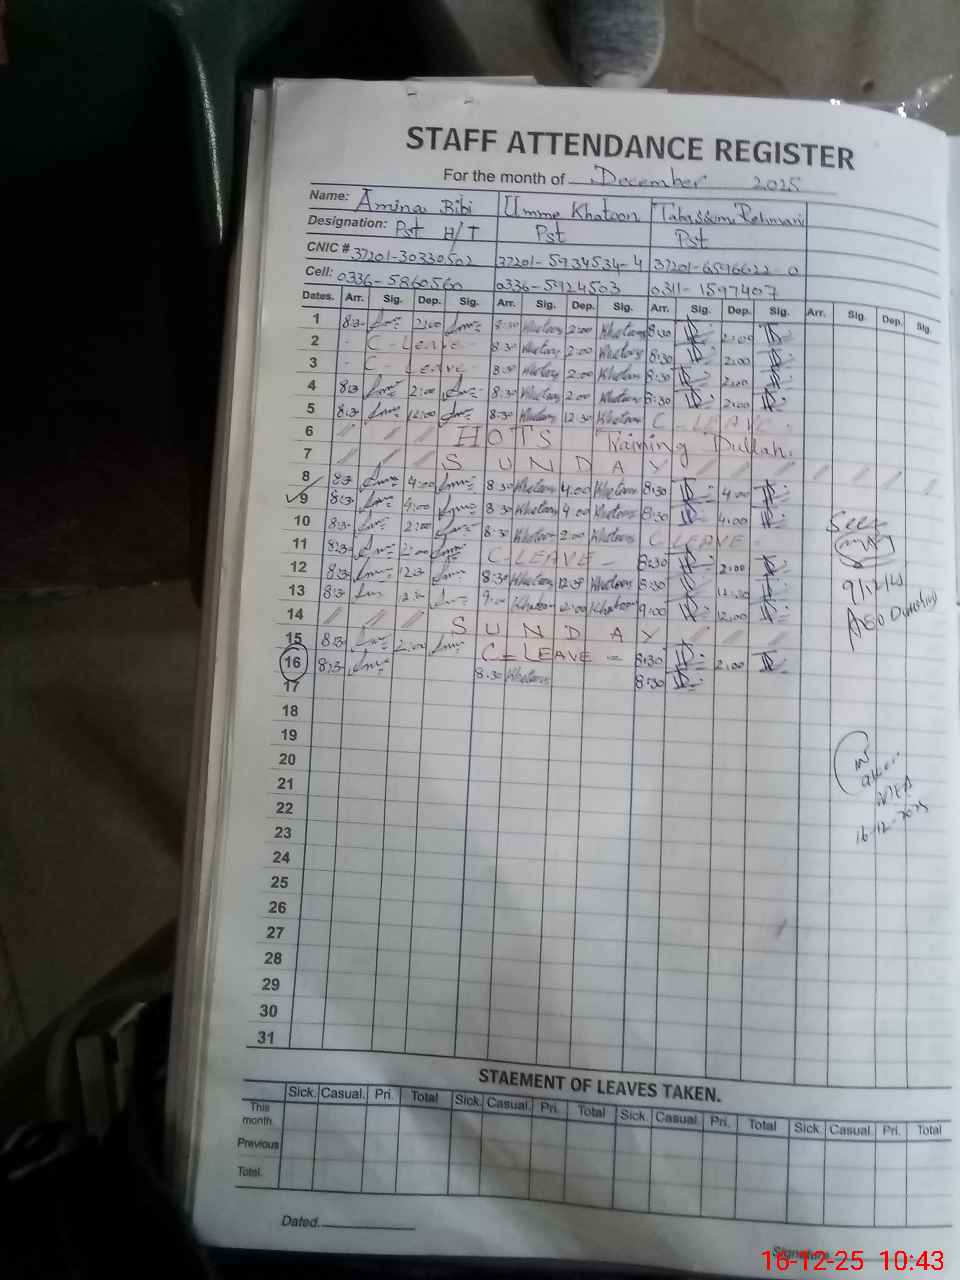 STAFF ATTENDANCE REGISTER
For the month of December 2025
Name: Amina Bibi Umme Khatoon Tabassum Rehman
Designation: Pst H/T Pst Pst
CNIC # 37201-30330502 37201-5934534-4 37201-6596622-0
Cell: 0336-5860560 0336-5924503 0311-1597407
Dates. Arr. Sig. Dep. Sig. Arr. Sig. Dep. Sig. Arr. Sig. Dep. Sig. Arr. Sig. Dep. Sig.
1 8:3 2:00 8:30 Khatoon 2:00 Khatoon 8:30 2:00
2 - C-Leave - 8:30 Khatoon 2:00 Khatoon 8:30 2:00
3 - C-Leave - 8:30 Khatoon 2:00 Khatoon 8:30 2:00
4 8:3 2:00 8:30 Khatoon 2:00 Khatoon 8:30 2:00
5 8:3 12:00 8:30 Khatoon 12:30 Khatoon C-LEAVE -
6 HOTS Training Dullah.
7 SUNDAY
8 8:3 4:00 8:30 Khatoon 4:00 Khatoon 8:30 4:00
9 8:3 4:00 8:30 Khatoon 4:00 Khatoon 8:30 4:00
10 8:3 2:00 8:30 Khatoon 2:00 Khatoon C LEAVE -
11 8:3 2:00 C-LEAVE - 8:30 2:00
12 8:3 12:3 8:30 Khatoon 12:30 Khatoon 8:30 12:30
13 8:3 9:00 Khatoon 2:00 Khatoon 9:00 2:00
14 SUNDAY
15 8:3 2:00 C-LEAVE - 8:30 2:00
16 8:3 8:30 Khatoon 8:30
17
18
19
20
21
22
23
24
25
26
27
28
29
30
31
Seen
9/12/25
AEO
MEA
16-12-2025
STAEMENT OF LEAVES TAKEN.
Sick. Casual. Pri. Total Sick. Casual. Pri. Total Sick. Casual. Pri. Total Sick. Casual. Pri. Total
This month
Previous
Total.
Dated.
Signature
16-12-25 10:43